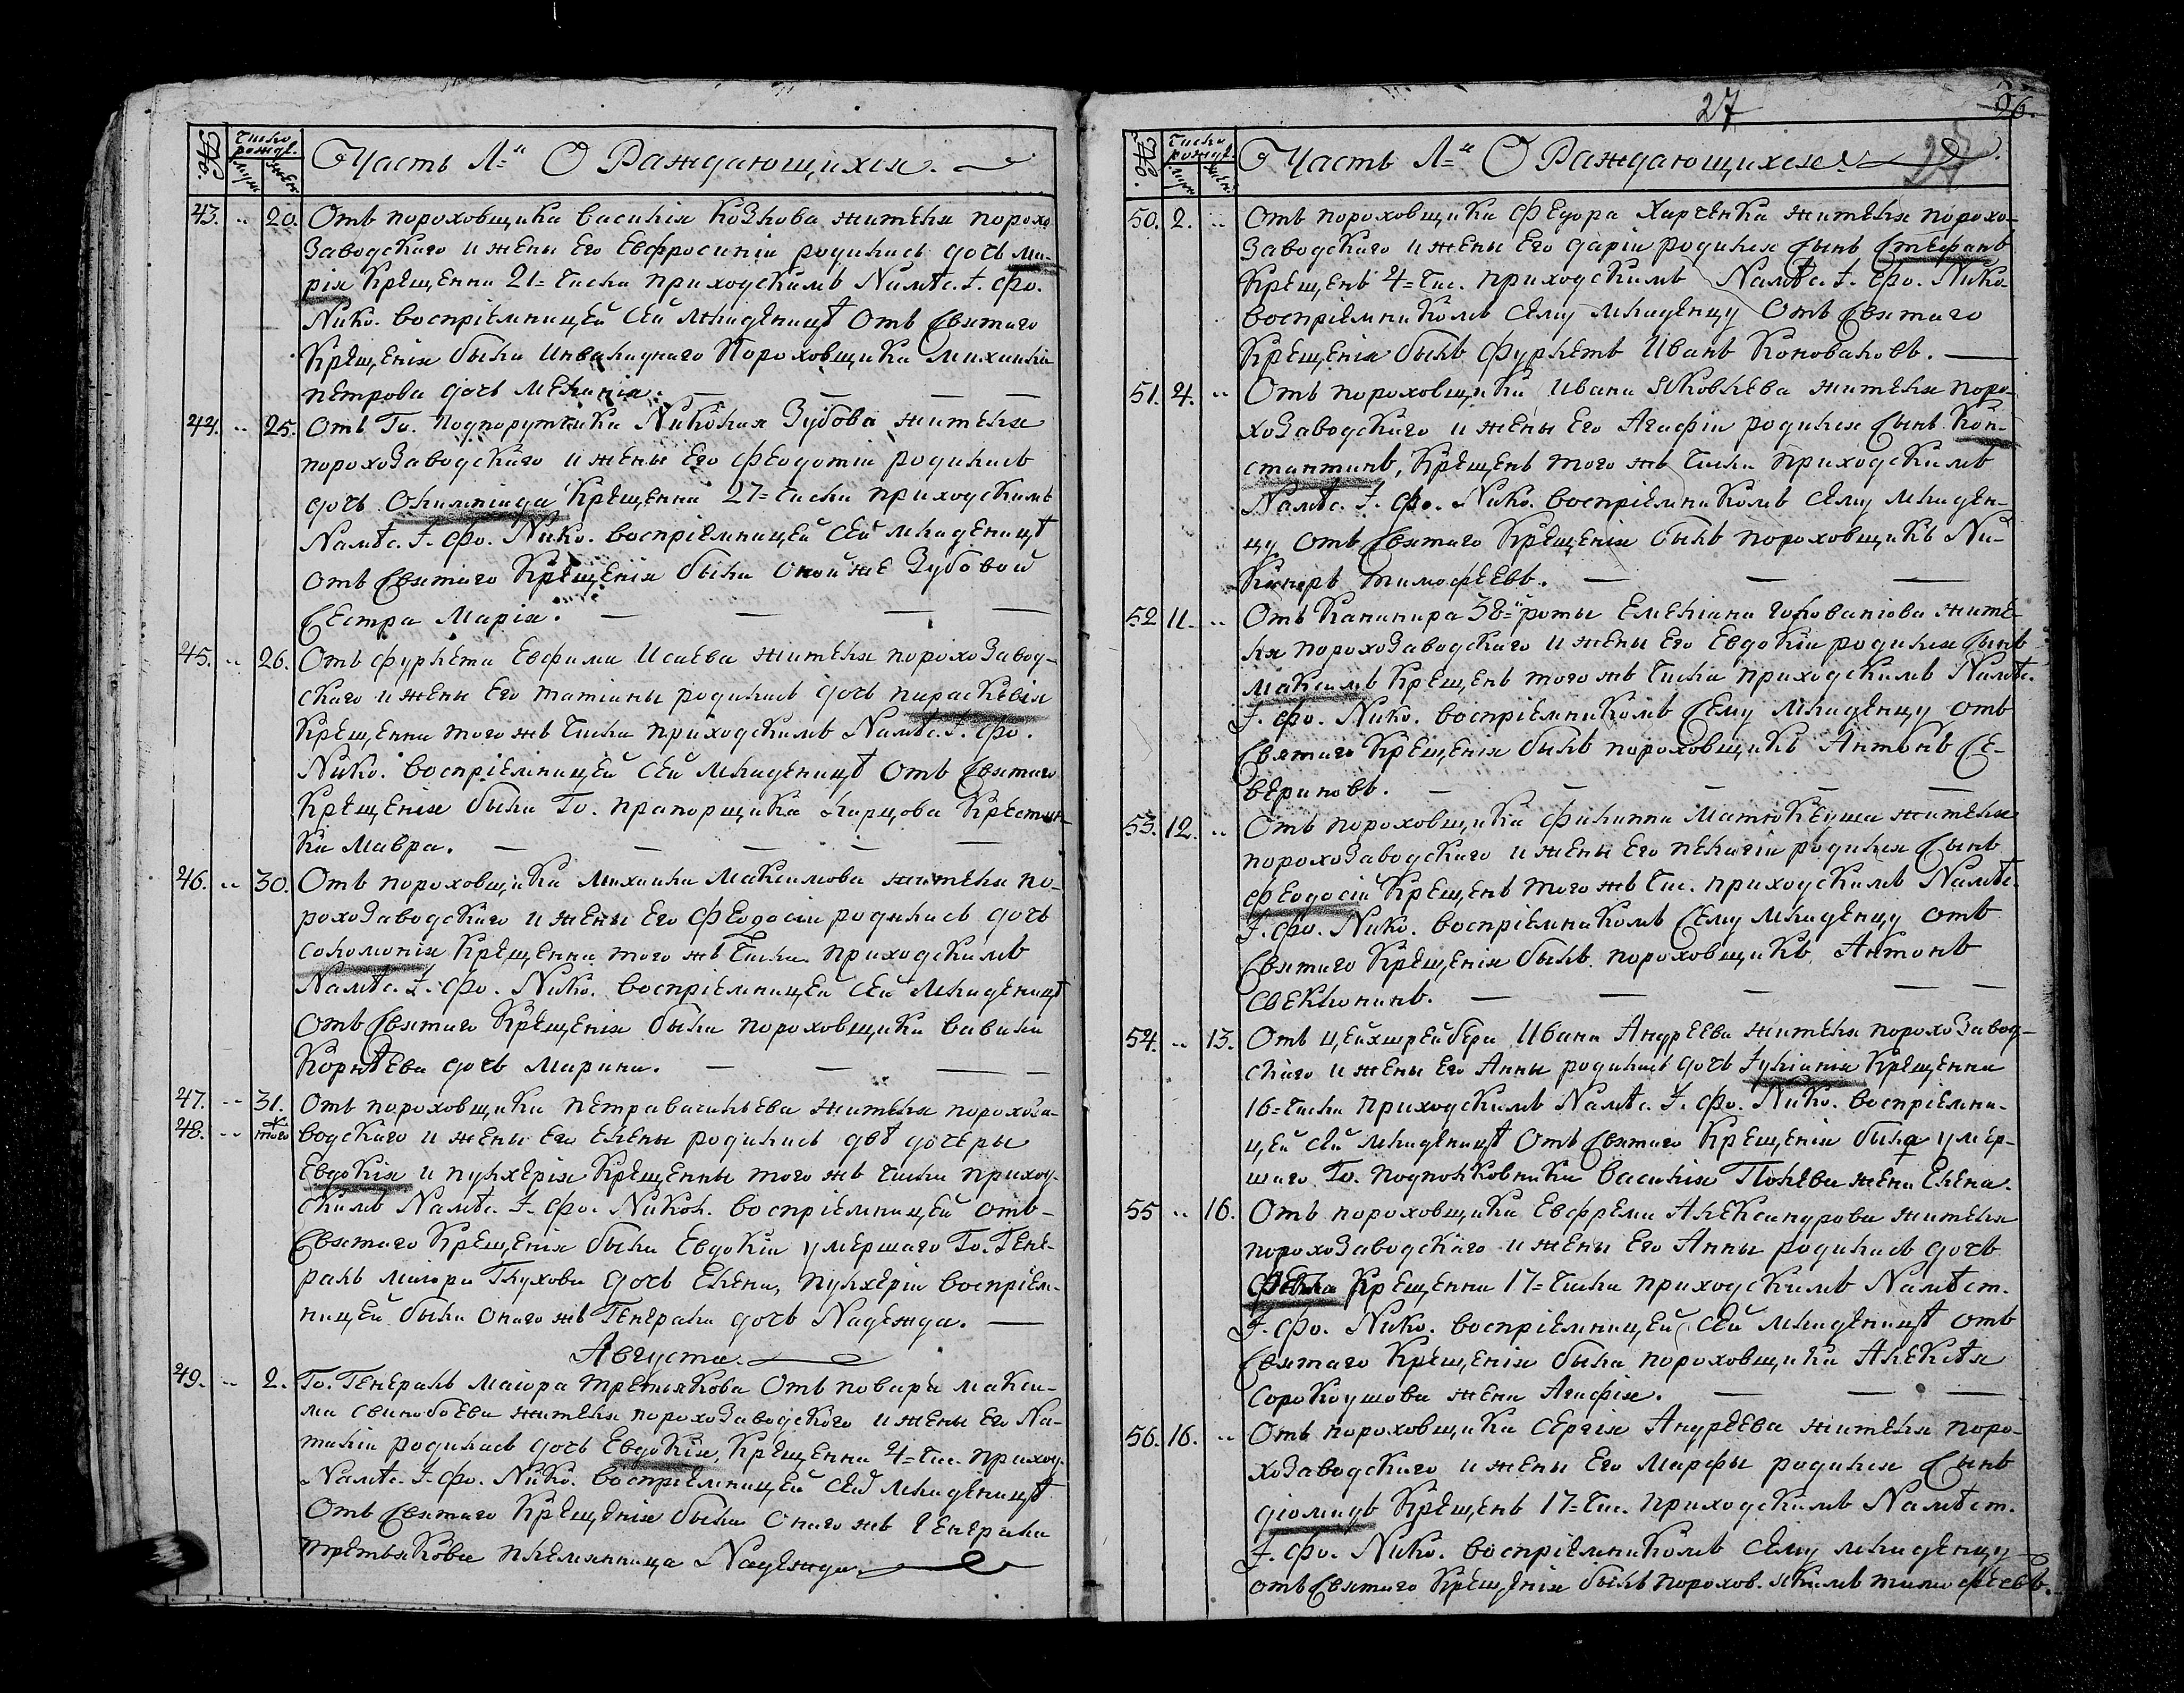 №
Число рожд.
муж.
жен.
Часть 1=я О Раждающихся.
43. .. 20. Отъ пороховщика Василія Козлова жителя порохо
заводскаго и жены Его Евфросиніи родилась дочь Ма-
рія Крещенна 21= числа приходскимъ Намѣс. І. Фро.
Нико. воспріемницей сей младеницѣ отъ Святаго
Крещенія была инвалиднаго пороховщика Михаила
Петрова дочь Меланія.
44. .. 25. Отъ Го. Подпорутчика Николая Зубова жителя
порохозаводскаго и жены Его Феодотіи родилась
дочь Олимпіада Крещенна 27= числа приходскимъ
Намѣс. І. Фро. Нико. воспріемницей сей младеницѣ
отъ Святаго Крещенія была оной же Зубовой
Сестра Марія.
45. .. 26. Отъ фурлета Евфима Исаева жителя порохозавод-
скаго и жены Его Татіаны родилась дочь Параскевія
Крещенна того жъ числа приходскимъ Намѣс. І. Фро.
Нико. воспріемницей сей младеницѣ отъ Святаго
Крещенія была Го. Прапорщика Карцова Крестьян-
ка Мавра.
46. .. 30. Отъ пороховщика Михаила Максимова жителя по-
рохозаводскаго и жены Его Феодосіи родилась дочь
Соломонія Крещенна того жъ числа приходскимъ
Намѣс. І. Фро. Нико. воспріемницей сей младеницѣ
отъ Святаго Крещенія была пороховщика Вавила
Корнѣева дочь Марина.
47. .. 31. Отъ пороховщика Петра Васильева жителя порохоза-
48. .. того водскаго и жены Его Елены родились двѣ дочеры
Евдокія и Пулхерія Крещенны того жъ числа приход-
скимъ Намѣс. І. Фро. Никол. воспріемницей отъ
Святаго Крещенія была Евдокіи умершаго Го. Гене-
ралъ Маіора Глухова дочь Елена, Пулхеріи воспріем-
ницей была онаго жъ Генерала дочь Надежда.
Августа.
49. .. 2. Го. Генералъ Маіора Третьякова отъ повара Макси-
ма Свинобоева жителя порохозаводскаго и жены Его На-
таліи родилась дочь Евдокія, Крещенна 4= чис. приход.
Намѣс. І. Фро. Нико. воспріемницей сей младеницѣ
отъ Святаго Крещенія была онаго жъ Генерала
Третьякова племянница Надежда.
27
26.
27
№
Число рожд.
муж.
жен.
Часть 1=я О Раждающихся.
50. 2. .. Отъ пороховщика Федора Харченка жителя порохо-
заводскаго и жены Его Даріи родился Сынъ Стефанъ
Крещенъ 4= чис. приходскимъ Намѣс. І. Фро. Нико.
воспріемникомъ сему младенцу отъ Святаго
Крещенія былъ фурлетъ Иванъ Коноваловъ.
51. 4. .. Отъ пороховщика Ивана Яковлева жителя поро-
хозаводскаго и жены Его Агафіи родился Сынъ Кон-
стантинъ, Крещенъ того жъ числа приходскимъ
Намѣс. І. Фро. Нико. воспріемникомъ сему младен-
цу отъ Святаго Крещенія былъ пороховщикъ Ни-
каноръ Тимофеевъ.
52 11. .. Отъ Канонира 38=й роты Емеліана Голованова жите-
ля порохозаводскаго и жены Его Евдокіи родился Сынъ
Максимъ Крещенъ того жъ числа приходскимъ Намѣс.
І. Фро. Нико. воспріемникомъ Сему младенцу отъ
Святаго Крещенія былъ пороховщикъ Антонъ Се-
вериновъ.
53. 12. .. Отъ пороховщика Филиппа Матюкеуша жителя
порохозаводскаго и жены Его Пелагіи родился Сынъ
Феодосій Крещенъ того жъ чис. приходскимъ Намѣс.
І. Фро. Нико. воспріемникомъ Сему младенцу отъ
Святаго Крещенія былъ пороховщикъ Антонъ
Свеклонинъ.
54. .. 13. Отъ цейхшрейбера Ивана Андреева жителя порохозавод-
скаго и жены Его Анны родилась дочь Іуліанія Крещенна
16= числа приходскимъ Намѣс. І. Фро. Нико. воспріемни-
цей сей младеницѣ отъ Святаго Крещенія была умер-
шаго Го. Подполковника Василія Полева жена Елена.
55 .. 16. Отъ пороховщика Евфрема Александрова жителя
порохозаводскаго и жены Его Анны родилась дочь
Фекла Крещенна 17= числа приходскимъ Намѣст.
І. Фро. Нико. воспріемницей сей младеницѣ отъ
Святаго Крещенія была пороховщика Алексѣя
Сорокоушова жена Агафія.
56. 16. .. Отъ пороховщика Сергія Андреева жителя поро-
хозаводскаго и жены Его Марфы родился Сынъ
Діомидъ Крещенъ 17= чис. приходскимъ Намѣст.
І. Фро. Нико. воспріемникомъ Сему младенцу
отъ Святаго Крещенія былъ порохов. Якимъ Тимофеевъ.